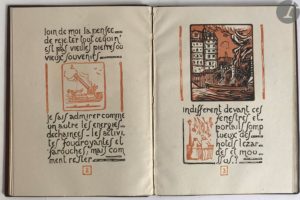 loin de moi la pensée
de rejeter tout ce qui n'
est pas vieilles pierres ou
vieux souvenirs
je sais admirer comme
un autre les énergies
déchainées les activi
tés foudroyantes et
farouches, mais com
ment rester
2
indifférent devant ces
fenêtres et
portails somp
tueux des
hotels lézar
dés et mou
ssus?
3